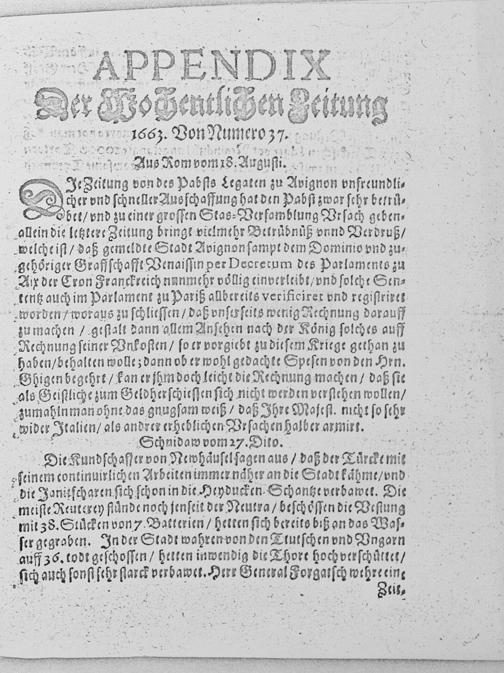 APPENDIX
Der Wochentlichen Zeitung
1663. Von Numero 37.
Aus Rom vom 18. Augusti.
DJe Zeitung von des Pabsts Legaten zu Avignon vnfreundli-
cher vnd schneller Ausschaffung hat den Pabst zwar sehr betrü-
bet / vnd zu einer grossen Stas-Versamblung Vrsach geben-
allein die letztere Zeitung bringt vielmehr Betrübnüß vnnd Verdruß /
welche ist / daß gemeldte Stadt Avignon sampt dem Dominio vnd zu-
gehöriger Graffschafft Venaissin per Decretum des Parlaments zu
Aix der Cron Franckreich nunmehr völlig einverleibt / vnd solche Sen-
tentz auch im Parlament zu Pariß allbereits verificiret vnd registriret
worden / woraus zu schliessen / daß vnserseits wenig Rechnung darauff
zu machen / gestalt dann allem Ansehen nach der König solches auff
Rechnung seiner Vnkosten / so er vorgiebt zu diesem Kriege gethan zu
haben / behalten wolle; dann ob er wohl gedachte Spesen von den Hrn.
Ghigen begehrt / kan er jhm doch leicht die Rechnung machen / daß sie
als Geistliche zum Geldherschiessen sich nicht werden verstehen wollen /
zumahln man ohne das gnugsam weiß / daß Jhre Majest. nicht so sehr
wider Italien / als andrer erheblichen Vrsachen halber armirt.
Schnidaw vom 27. Dito.
Die Kundschaffer von Newhäusel sagen aus / daß der Türcke mit
seinem continuirlichen Arbeiten immer näher an die Stadt kähme / vnd
die Janitscharen sich schon in die Heyducken-Schantze verbawet. Die
meiste Reuterey stünde noch jenseit der Neutra / beschössen die Vestung
mit 38. Stücken von 7. Batterien / hetten sich bereits biß an das Was-
ser gegraben. In der Stadt wahren von den Teutschen vnd Vngarn
auff 36. todt geschossen / hetten inwendig die Thore hoch verschüttet /
sich auch sonst sehr starck verbawet. Herr General Forgatsch wehre eine
Zeit-